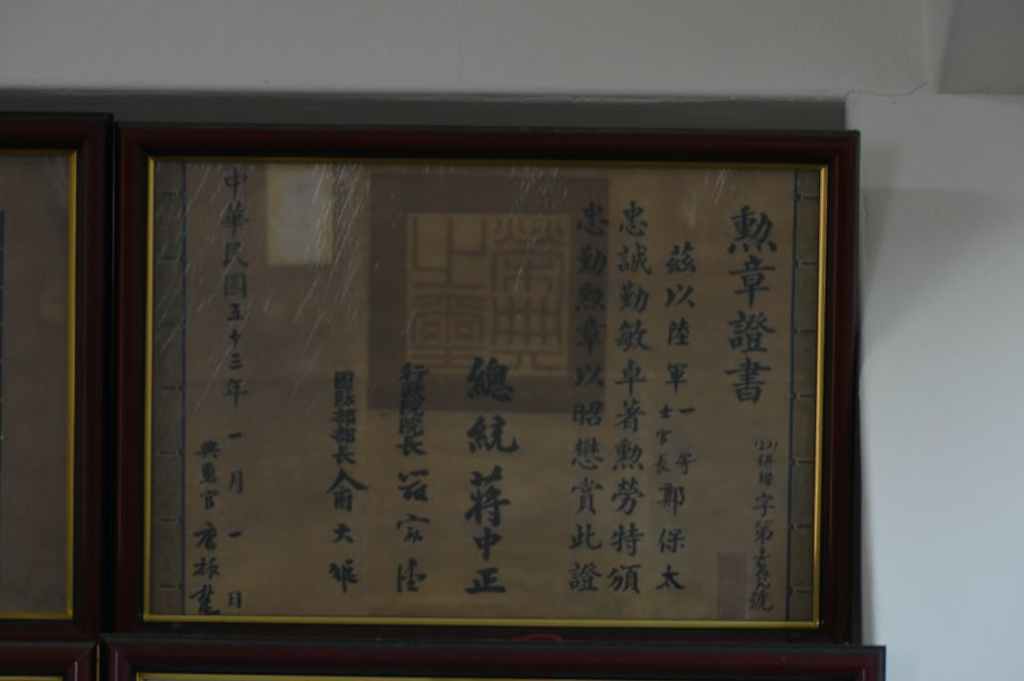 勲章證書
字第 號
茲以陸軍一等士官長郭保太
忠誠勤敏卓著勲勞特頒
忠勤勲章以昭懋賞此證
榮典之璽
總統 蔣中正
行政院長 嚴家淦
國防部部長 俞大維
中華民國五十三年一月一日
典璽官 唐振楚